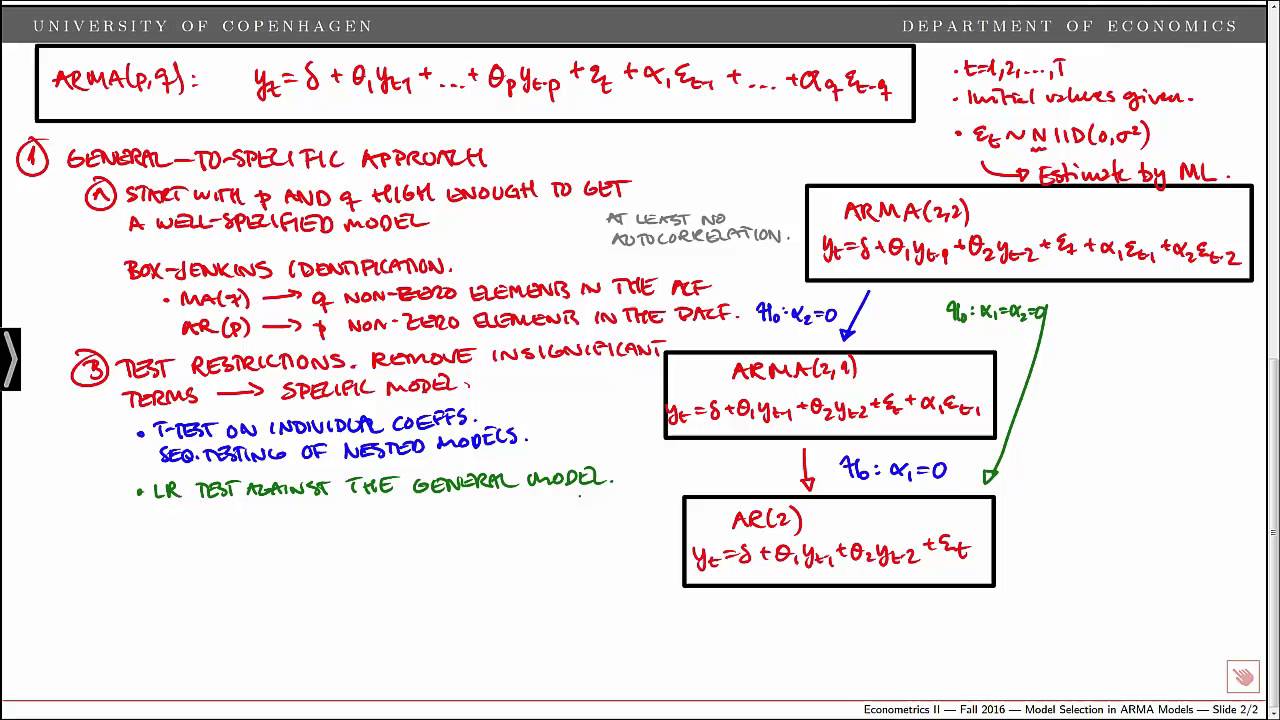 UNIVERSITY OF COPENHAGEN
DEPARTMENT OF ECONOMICS
ARMA(p,q): y_t = δ + θ_1 y_t-1 + ... + θ_p y_t-p + ε_t + α_1 ε_t-1 + ... + α_q ε_t-q
• t=1,2,...,T
• Initial values given.
• ε_t ~ N IID(0,σ²)
→ Estimate by ML.
① GENERAL-TO-SPECIFIC APPROACH
Ⓐ START WITH p AND q HIGH ENOUGH TO GET
A WELL-SPECIFIED MODEL
AT LEAST NO
AUTOCORRELATION.
BOX-JENKINS IDENTIFICATION.
• MA(q) → q NON-ZERO ELEMENTS IN THE ACF
AR(p) → p NON-ZERO ELEMENTS IN THE PACF.
Ⓑ TEST RESTRICTIONS. REMOVE INSIGNIFICANT
TERMS → SPECIFIC MODEL.
• T-TEST ON INDIVIDUAL COEFFS.
SEQ. TESTING OF NESTED MODELS.
• LR TEST AGAINST THE GENERAL MODEL.
ARMA(2,2)
y_t = δ + θ_1 y_t-1 + θ_2 y_t-2 + ε_t + α_1 ε_t-1 + α_2 ε_t-2
H_0: α_2=0
H_0: α_1=α_2=0
ARMA(2,1)
y_t = δ + θ_1 y_t-1 + θ_2 y_t-2 + ε_t + α_1 ε_t-1
H_0: α_1=0
AR(2)
y_t = δ + θ_1 y_t-1 + θ_2 y_t-2 + ε_t
Econometrics II — Fall 2016 — Model Selection in ARMA Models — Slide 2/2